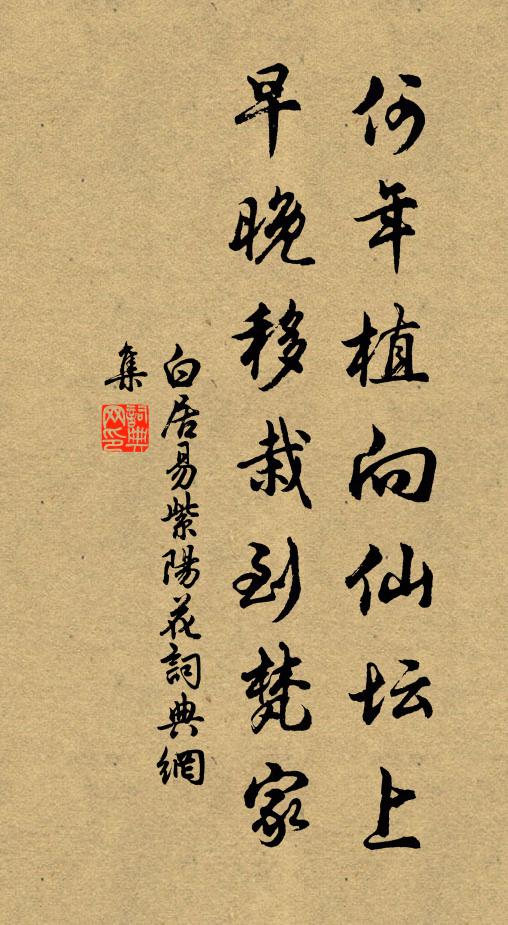 何年植向仙坛上
早晚移栽到梵家
白居易紫陽花詞典網
集
詞典网印